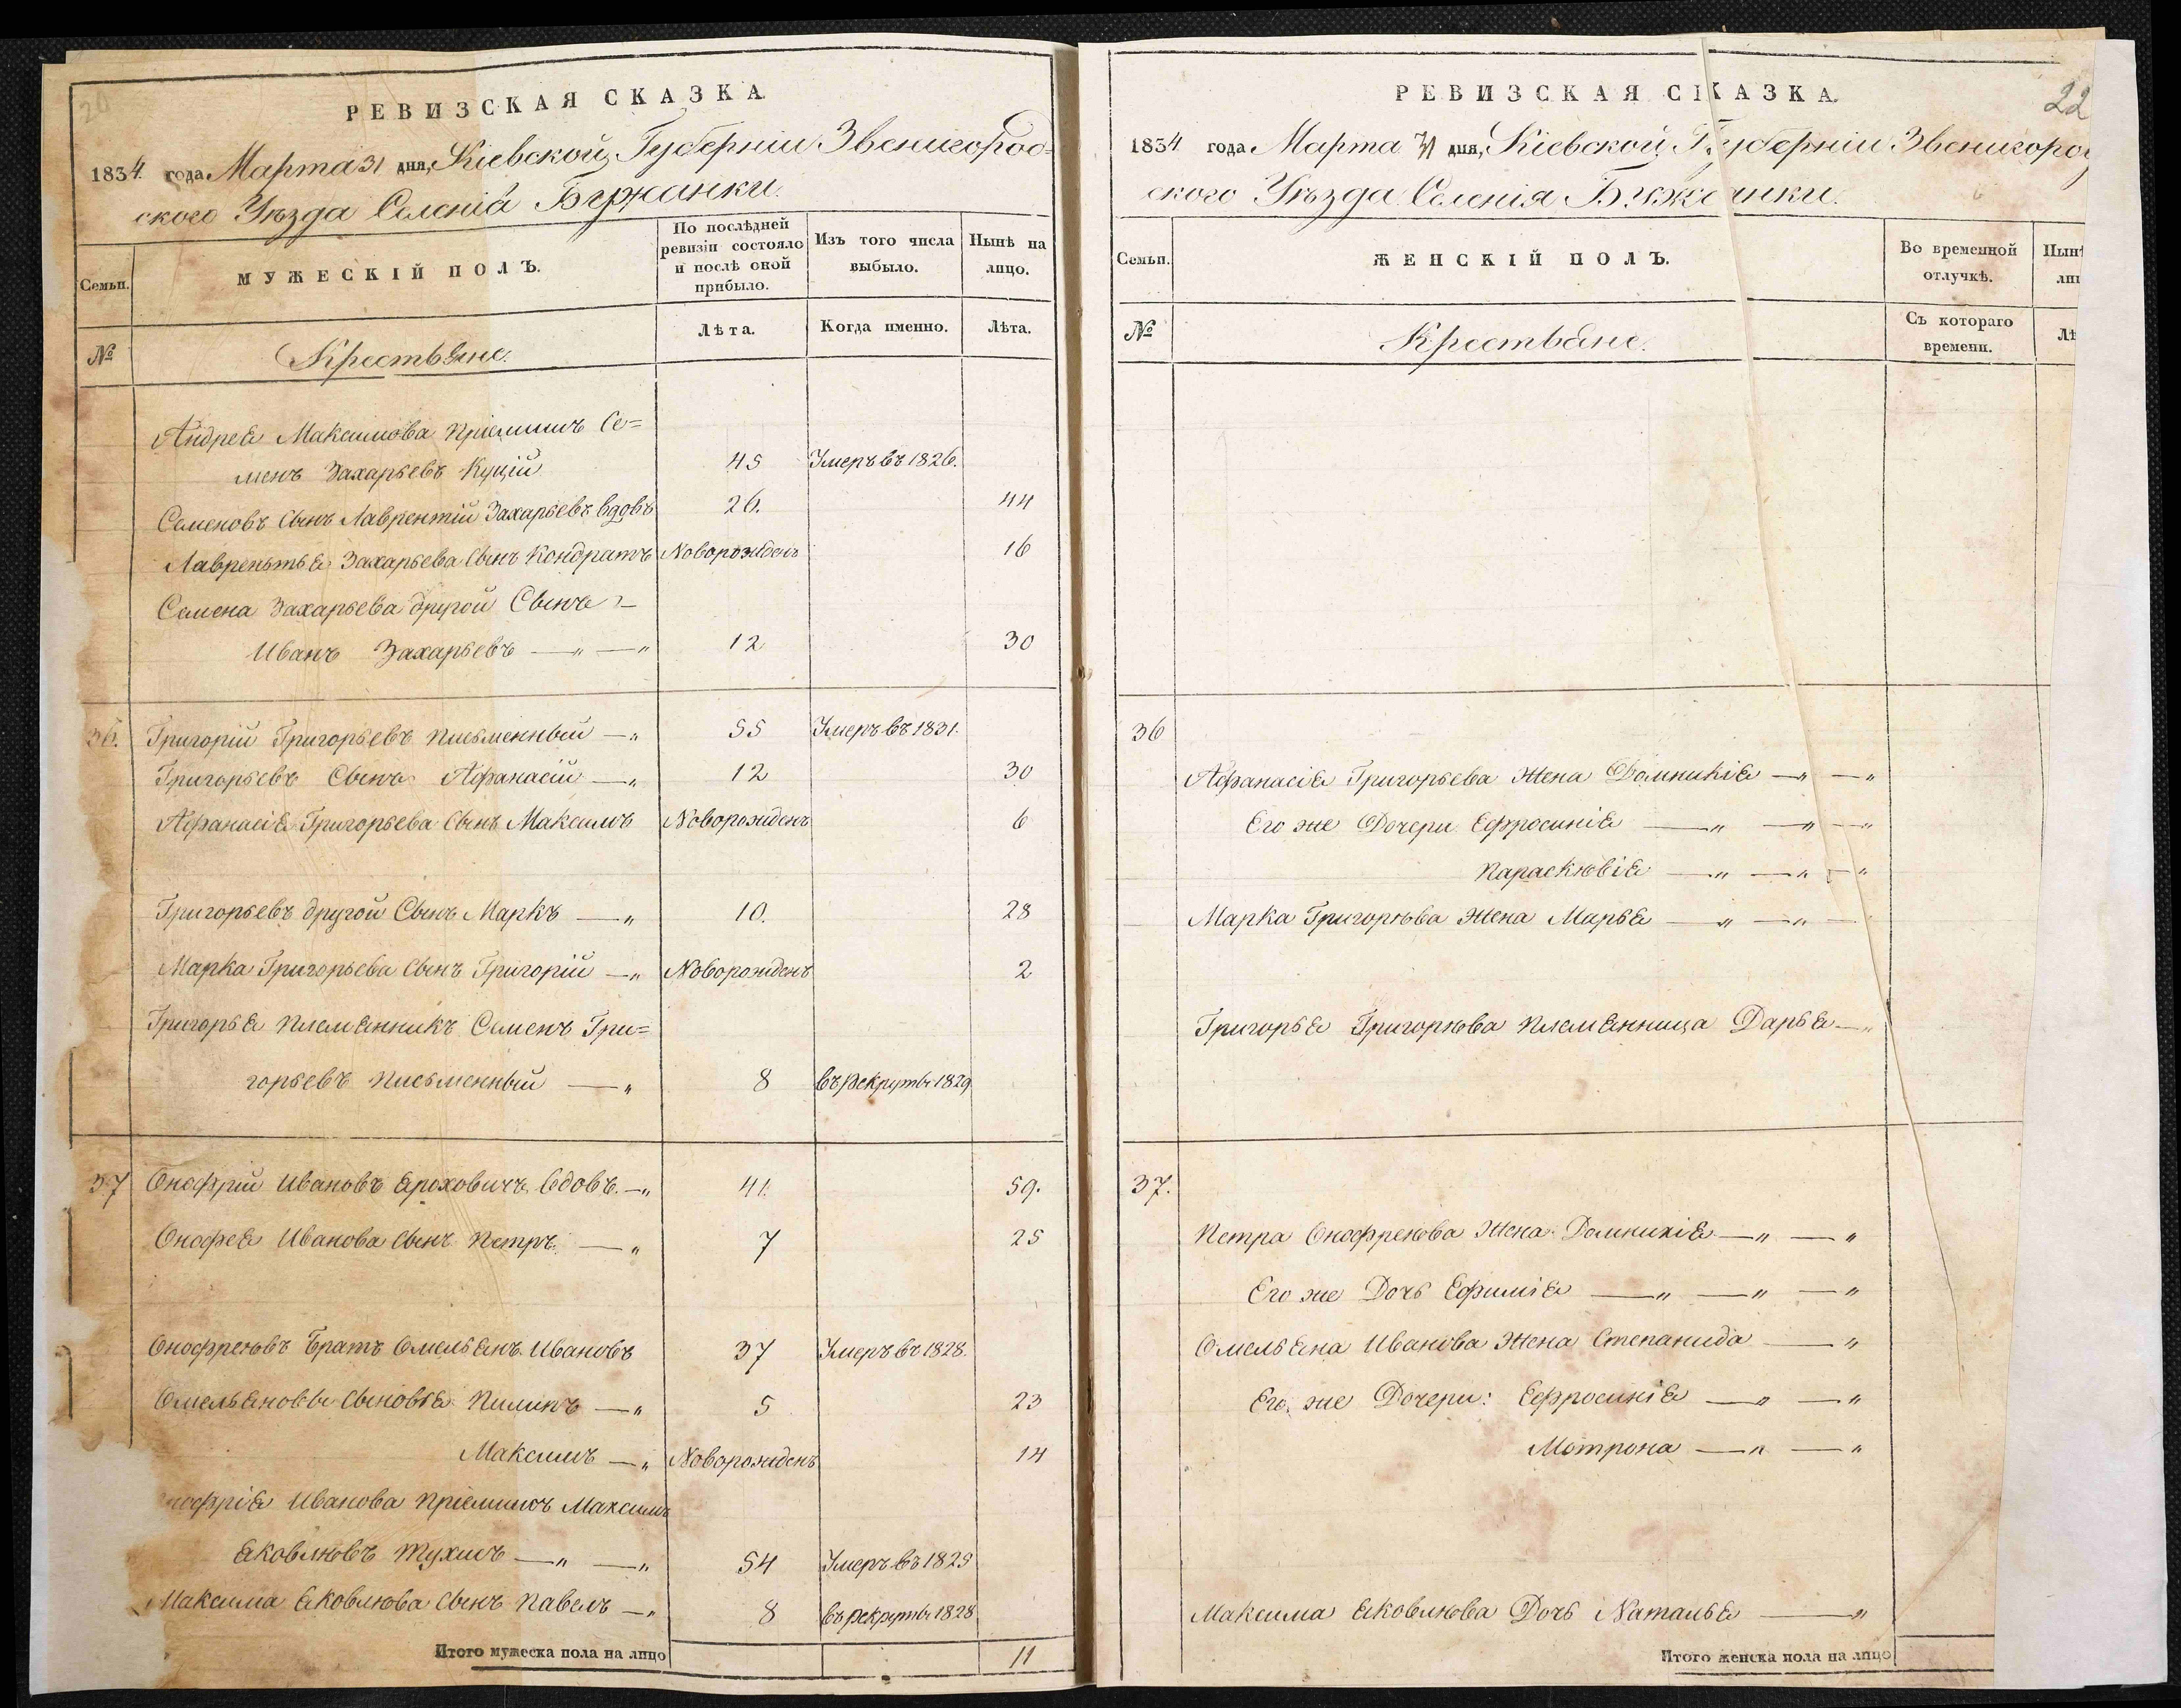 20
РЕВИЗСКАЯ СКАЗКА
1834 года Марта 31 дня, Кіевской Губерніи Звенигород=
ского Уѣзда Селенія Бужанки.
Семьи.
МУЖЕСКІЙ ПОЛЪ.
По послѣдней ревизіи состояло и послѣ оной прибыло.
Изъ того числа выбыло.
Нынѣ на лицо.
№
Крестьяне.
Лѣта.
Когда именно.
Лѣта.
Андрея Максимова пріемышъ Се=
менъ Захарьевъ Куцій 45 Умеръ въ 1826.
Семеновъ Сынъ Лаврентій Захарьевъ вдовъ 26. 44
Лаврентья Захарьева Сынъ Кондратъ Новорожденъ 16
Семена Захарьева другой Сынъ
Иванъ Захарьевъ — „ — „ 12 30
36. Григорій Григорьевъ Письменный — „ 55 Умеръ въ 1831.
Григорьевъ Сынъ Афанасій — „ 12 30
Афанасія Григорьева Сынъ Максимъ Новорожденъ 6
Григорьевъ другой Сынъ Маркъ — „ 10. 28
Марка Григорьева Сынъ Григорій — „ Новорожденъ 2
Григорья племянникъ Семенъ Гри=
горьевъ Письменный — „ 8 въ рекруты 1829
37 Онофрій Ивановъ Яроховичъ вдовъ. — „ 41. 59.
Онофрея Иванова Сынъ Петръ. — „ 7 25
Онофреѣвъ Братъ Омельянъ Ивановъ 37 Умеръ въ 1828.
Омельяновы Сыновья Пилипъ — „ 5 23
Максимъ — „ Новорожденъ 14
нофрія Иванова пріемышъ Максимъ
Яковлѣвъ Тухичъ — „ — „ 54 Умеръ въ 1825
Максима Яковлѣва Сынъ Павелъ — „ 8 въ рекруты 1828
Итого мужеска пола на лицо 11
22
РЕВИЗСКАЯ СКАЗКА.
1834 года Марта 31 дня, Кіевской Губерніи Звенигород
ского Уѣзда Селенія Бужанки.
Семьи.
ЖЕНСКІЙ ПОЛЪ.
Во временной отлучкѣ.
Нынѣ
ли
№
Крестьяне.
Съ котораго времени.
Лѣ
36
Афанасія Григорьева Жена Домникія — „ — „
Его же Дочери Ефросинія — „ — „ — „
Параскѣвія — „ — „ — „
Марка Григорѣва Жена Марья — „ — „ —
Григорья Григорѣва племянница Дарья — „
37.
Петра Онофреѣва Жена Домникія — „ — „
Его же Дочь Ефимія — „ — „ — „
Омельяна Иванова Жена Степанида — „
Его же Дочери: Ефросинія — „ — „
Мотрона — „ — „
Максима Яковлѣва Дочь Наталья — „
Итого женска пола на лицо